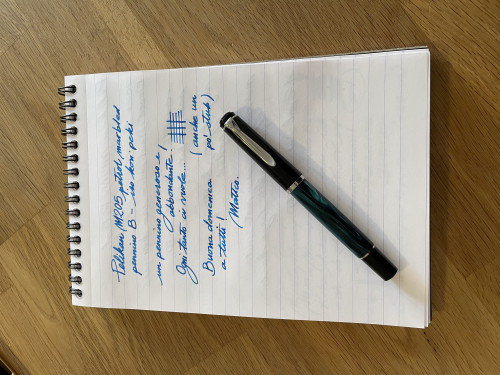 Pelikan M205 petrol marbled
pennino B - iro kon-peki
un pennino generoso e
abbondante.
Ogni tanto ci vuole... (anche un
Buona domenica po' stub)
a tutti!
Matteo.